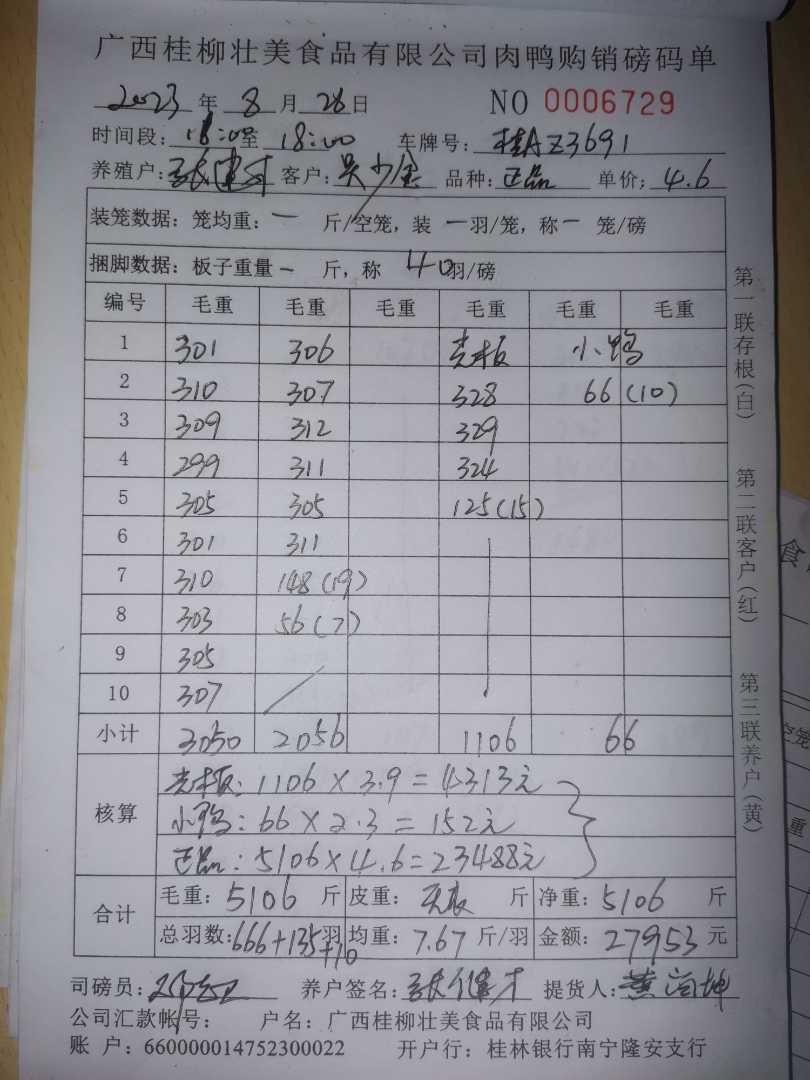 广西桂柳壮美食品有限公司肉鸭购销磅码单
2023 年 8 月 28 日 NO 0006729
时间段: 18:00 至 18:00 车牌号: 桂AZ3691
养殖户: 张健才 客户: 吴少金 品种: 正品 单价: 4.6
装笼数据: 笼均重: 一 斤/空笼, 装 一 羽/笼, 称 一 笼/磅
捆脚数据: 板子重量 一 斤, 称 40 羽/磅
编号 毛重 毛重 毛重 毛重 毛重 毛重
1 301 306 壳板 小鸭
2 310 307 328 66 (10)
3 309 312 329
4 299 311 324
5 305 305 125(15)
6 301 311
7 310 148(19)
8 303 56(7)
9 305
10 307
小计 3050 2056 1106 66
核算 壳板: 1106 × 3.9 = 4313元
小鸭: 66 × 2.3 = 152元
正品: 5106 × 4.6 = 23488元
合计 毛重: 5106 斤 皮重: 斤 净重: 5106 斤
总羽数: 666+135+10 羽 均重: 7.67 斤/羽 金额: 27953 元
司磅员: 养户签名: 张健才 提货人:
公司汇款帐号: 户名: 广西桂柳壮美食品有限公司
账 户: 660000014752300022 开户行: 桂林银行南宁隆安支行
第一联存根(白) 第二联客户(红) 第三联养户(黄)
食
空笼
重